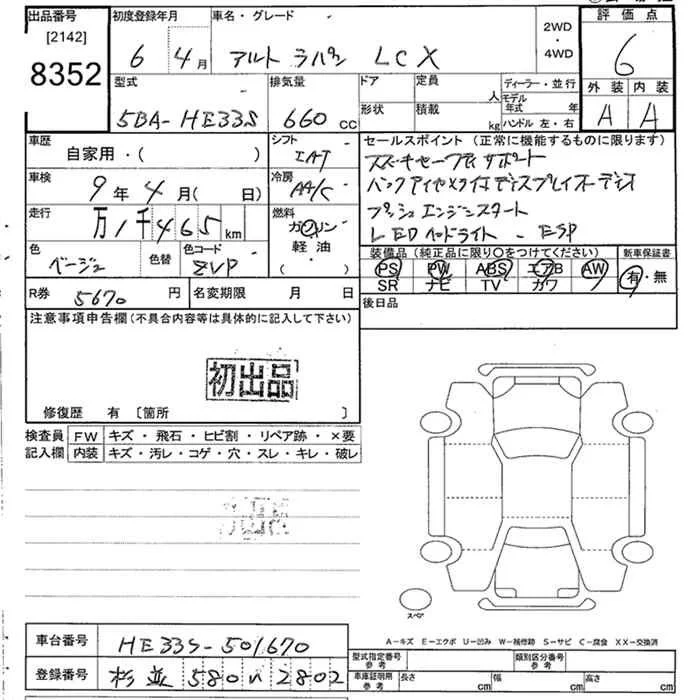 出品番号
[2142]
8352
初度登録年月
6年4月
車名・グレード
アルト ラパン LCX
2WD
・
4WD
評価点
6
外装 内装
A A
型式
5BA-HE33S
排気量
660 CC
ドア
形状
定員 人
積載 kg
ディーラー・並行
モデル年式 年
ハンドル 左・右
車歴
自家用・( )
シフト
IAT
車検
9年4月( 日)
冷房
AA/C
走行
万1千465km
燃料
ガソリン
軽油・
( ・ )
色
ベージュ
色替
色コード
ZVP
セールスポイント(正常に機能するものに限ります)
バックアイカメラ付ディスプレイオーディオ
プッシュエンジンスタート
LEDヘッドライト - ESP
装備品(純正品に限り○をつけてください)
PS PW ABS エアB AW
SR ナビ TV カワ
新車保証書
有・無
R券 5670円
名変期限 月 日
後日品
注意事項申告欄(不具合内容等は具体的に記入して下さい)
初出品
修復歴 有 〔箇所 〕
検査員記入欄
FW キズ・飛石・ヒビ割・リペア跡・×要
内装 キズ・汚レ・コゲ・穴・スレ・キレ・破レ
スペア
A-キズ E-エクボ U-凹み W-補修跡 S-サビ C-腐食 XX-交換済
車台番号
HE33S-501670
登録番号
杉並 580 い 2802
型式指定番号
参考
類別区分番号
参考
車庫証明用
参考
長さ cm 幅 cm 高さ cm